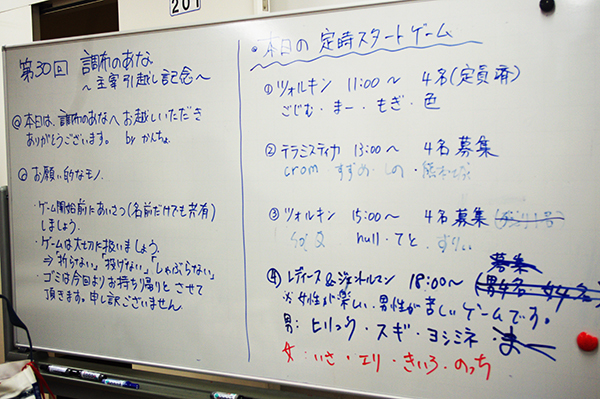 201
第30回 調布のあな
〜主宰引越し記念〜
◎本日は、調布のあなへお越しいただき
ありがとうございます。 by かんちょ
◎お願い的なモノ
・ゲーム開始前にあいさつ(名前だけでも共有)
しましょう。
・ゲームは大切に扱いましょう。
⇒「折らない」「投げない」「しゃぶらない」
・ゴミは今回よりお持ち帰りとさせて
頂きます。申し訳ございません
・本日の定時スタートゲーム
① ツォルキン 11:00〜 4名(定員済)
ごじむ・まー・もぎ・色
② テラミスティカ 13:00〜 4名募集
crom すずめ・しの・
③ ツォルキン 15:00〜 4名募集
null・てと・ずりぃ
募集
④ レディース&ジェントルマン 18:00〜 (男4名 女4名)
※女性が楽しい、男性が苦しいゲームです。
男:ヒリュウ・スギ・ヨシミネ・まー
女:いさ・エリ・きいろ・のっち